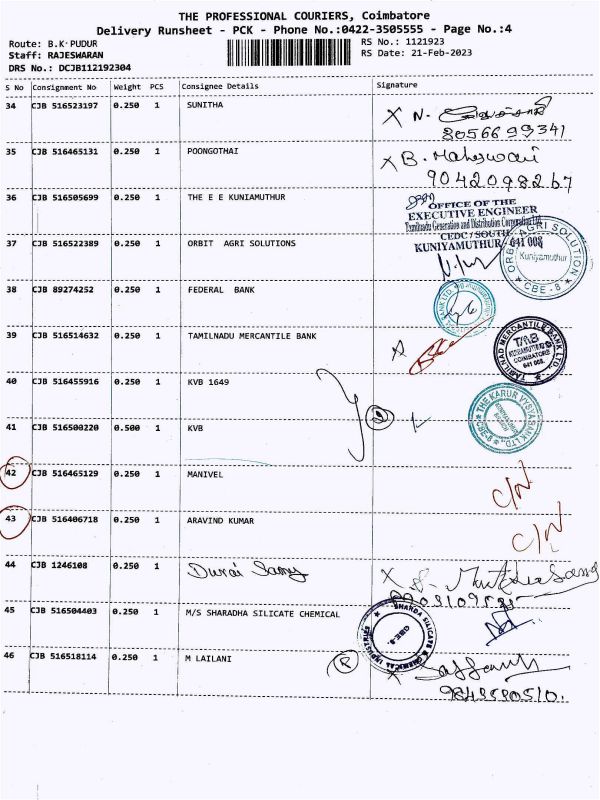 THE PROFESSIONAL COURIERS, Coimbatore
Delivery Runsheet - PCK - Phone No.:0422-3505555 - Page No.:4
Route: B.K PUDUR
RS No.: 1121923
Staff: RAJESWARAN
RS Date: 21-Feb-2023
DRS No.: DCJB112192304
S No Consignment No Weight PCS Consignee Details Signature
34 CJB 516523197 0.250 1 SUNITHA X N.
8056699341
35 CJB 516465131 0.250 1 POONGOTHAI X B. Maheswari
9042098267
36 CJB 516505699 0.250 1 THE E E KUNIAMUTHUR
OFFICE OF THE
EXECUTIVE ENGINEER
Tamilnadu Generation and Distribution Corporation Ltd
CEDC / SOUTH
KUNIYAMUTHUR - 641 008
37 CJB 516522389 0.250 1 ORBIT AGRI SOLUTIONS
ORBIT AGRI SOLUTION
Kuniyamuthur
* CBE-8 *
38 CJB 89274252 0.250 1 FEDERAL BANK
39 CJB 516514632 0.250 1 TAMILNADU MERCANTILE BANK
TAMILNAD MERCANTILE BANK LTD.
TMB
KUNIAMUTHUR
COIMBATORE
641 008.
40 CJB 516455916 0.250 1 KVB 1649
THE KARUR VYSYA BANK LTD.
CBE-8
41 CJB 516500220 0.500 1 KVB
42 CJB 516465129 0.250 1 MANIVEL C/N
43 CJB 516406718 0.250 1 ARAVIND KUMAR C/N
44 CJB 1246108 0.250 1 Durai Samy X
45 CJB 516504403 0.250 1 M/S SHARADHA SILICATE CHEMICAL
SILICATE & CHEMICAL INDUSTRIES
CBE-8.
46 CJB 516518114 0.250 1 M LAILANI R X